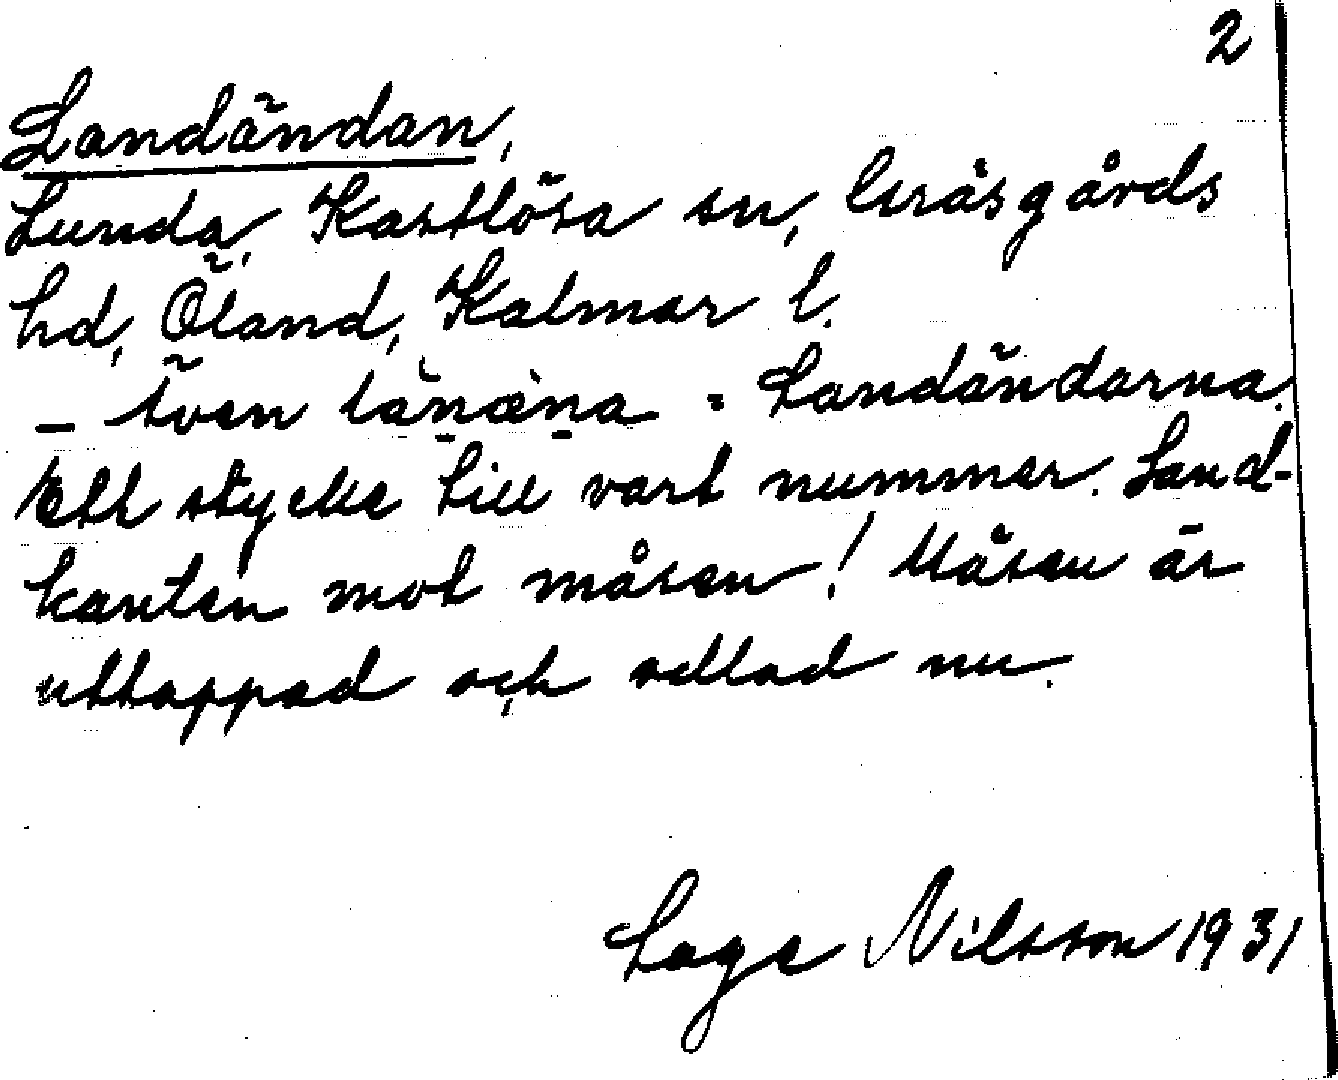 2
Landändan,
Lunda, Kastlösa sn, Gräsgårds
hd, Öland, Kalmar l.
– Även länäna = Landändarna.
Ett stycke till vart nummer. Land-
kanten mot måsen! Måsen är
uttappad och odlad nu.
Lage Nilsson 1931